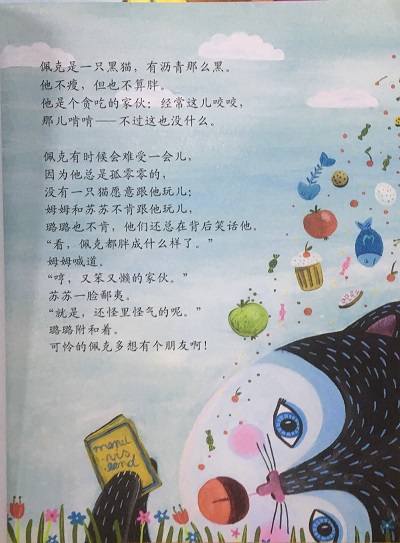 佩克是一只黑猫，有沥青那么黑。
他不瘦，但也不算胖。
他是个贪吃的家伙：经常这儿咬咬，
那儿啃啃——不过这也没什么。
佩克有时候会难受一会儿，
因为他总是孤零零的，
没有一只猫愿意跟他玩儿；
姆姆和苏苏不肯跟他玩儿，
璐璐也不肯，他们还总在背后笑话他。
“看，佩克都胖成什么样了。”
姆姆喊道。
“哼，又笨又懒的家伙。”
苏苏一脸鄙夷。
“就是，还怪里怪气的呢。”
璐璐附和着。
可怜的佩克多想有个朋友啊！
menu
vis
eend